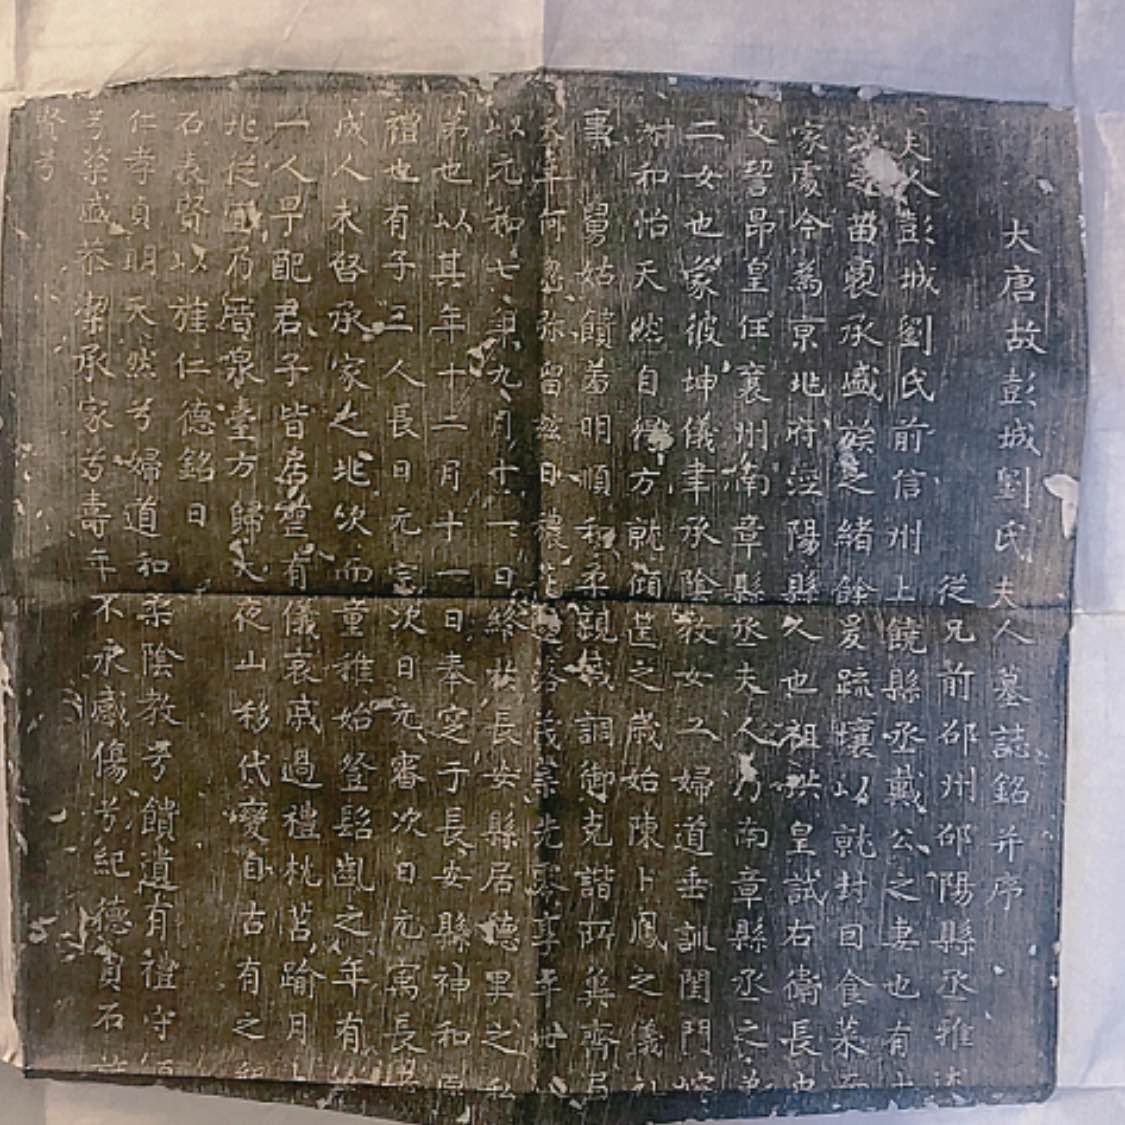 大唐故彭城劉氏夫人墓誌銘并序
從兄前邵州邵陽縣丞雅述
夫人彭城劉氏前信州上饒縣丞戴公之妻也有
苗裔承盛族之緒餘爰疏壤以就封因食菜而
家處今為京兆府涇陽縣久也祖洪皇試右衛長史
父詧昂皇任襄州南章縣丞夫人乃南章縣丞之弟
二女也家彼坤儀聿承陰教女工婦道垂訓閨門
和怡天然自得方就傾筐之歲始陳卜鳳之儀禮
事舅姑饋羞明順和柔親戚調御克諧所冀齊眉
天年何忽弥留茲日穠光享年卅
以元和七年九月十一日終於長安縣居德里之私
第也以其年十二月十一日奉窆于長安縣神和原
禮也有子三人長曰元宗次曰元審次曰元寓長
成人未昏承家之兆次而童稚始登髫齔之年有
一人早配君子皆有儀哀戚過禮枕苫踰月
兆從宜乃厝泉臺方歸大夜山移代變自古有之
石表賢以旌仁德銘曰
仁孝貞明天然兮婦道和柔陰教兮饋遺有禮守
兮粢盛恭潔承家兮壽年不永感傷兮紀德貞石
賢兮